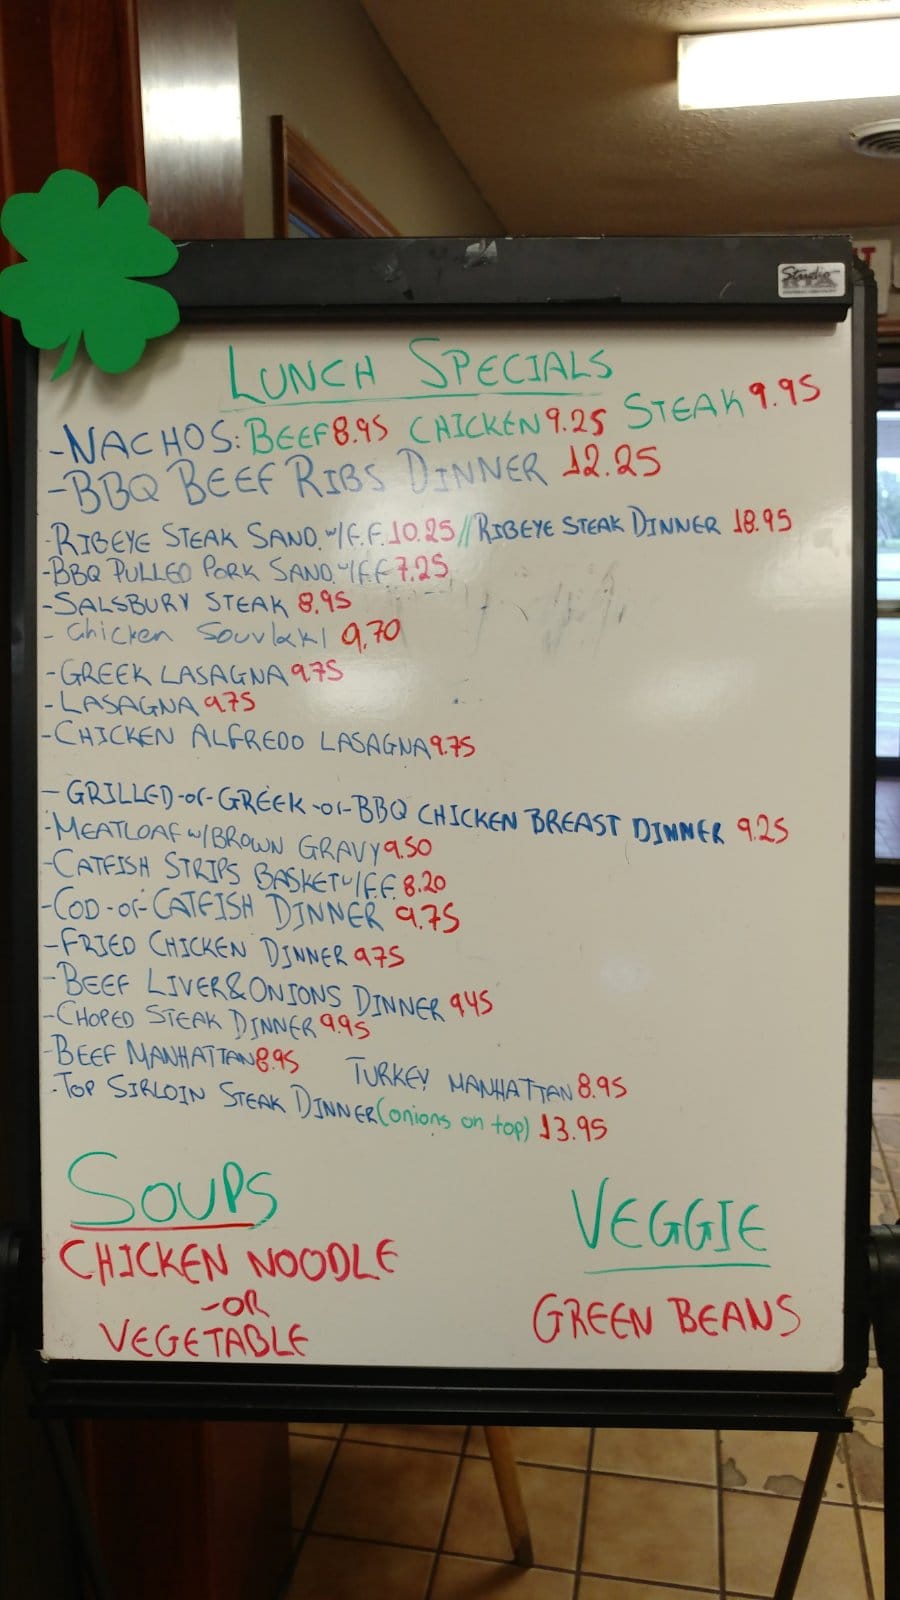 Studio
LUNCH SPECIALS
-NACHOS: BEEF 8.95 CHICKEN 9.25 STEAK 9.95
-BBQ BEEF RIBS DINNER 12.25
-RIBEYE STEAK SAND. W/F.F. 10.25//RIBEYE STEAK DINNER 18.95
-BBQ PULLED PORK SAND. W/FF 7.25
-SALSBURY STEAK 8.95
- Chicken Souvlaki 9.70
-GREEK LASAGNA 9.75
-LASAGNA 9.75
-CHICKEN ALFREDO LASAGNA 9.75
-GRILLED-or-GREEK-or-BBQ CHICKEN BREAST DINNER 9.25
-MEATLOAF W/BROWN GRAVY 9.50
-CATFISH STRIPS BASKET W/F.F. 8.20
-COD-or-CATFISH DINNER 9.75
-FRIED CHICKEN DINNER 9.75
-BEEF LIVER&ONIONS DINNER 9.45
-CHOPED STEAK DINNER 9.95
-BEEF MANHATTAN 8.95 TURKEY MANHATTAN 8.95
-TOP SIRLOIN STEAK DINNER (onions on top) 13.95
SOUPS
CHICKEN NOODLE
-OR
VEGETABLE
VEGGIE
GREEN BEANS